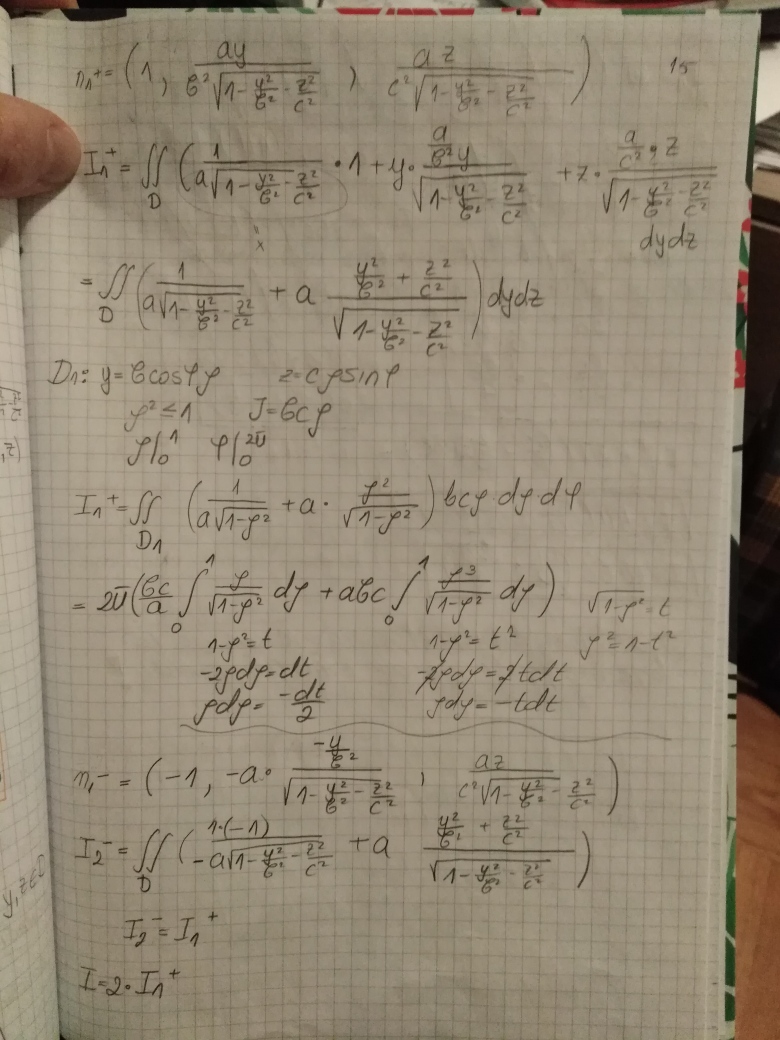 15
n₁⁺ = (1, ay/(b²√(1-y²/b²-z²/c²)), az/(c²√(1-y²/b²-z²/c²)))
I₁⁺ = ∬_D (1/(a√(1-y²/b²-z²/c²)) · 1 + y · (a/b² y)/√(1-y²/b²-z²/c²) + z · (a/c² · z)/√(1-y²/b²-z²/c²)
" x
dydz
= ∬_D (1/(a√(1-y²/b²-z²/c²)) + a (y²/b² + z²/c²)/√(1-y²/b²-z²/c²)) dydz
D₁: y = bcosφρ z = cρsinφ
ρ² ≤ 1 J = bcρ
ρ|₀¹ φ|₀^2π
I₁⁺ = ∬_D₁ (1/(a√(1-ρ²)) + a · ρ²/√(1-ρ²)) bcρ · dρ · dφ
= 2π (bc/a ∫₀¹ ρ/√(1-ρ²) dρ + abc ∫₀¹ ρ³/√(1-ρ²) dρ) √(1-ρ²) = t
1-ρ² = t 1-ρ² = t² ρ² = 1-t²
-2ρdρ = dt -2ρdρ = 2tdt
ρdρ = -dt/2 ρdρ = -tdt
n₁⁻ = (-1, -a · (-y/b²)/√(1-y²/b²-z²/c²), az/(c²√(1-y²/b²-z²/c²)))
I₂⁻ = ∬_D (1·(-1)/(-a√(1-y²/b²-z²/c²)) + a (y²/b² + z²/c²)/√(1-y²/b²-z²/c²))
I₂⁻ = I₁⁺
I = 2 · I₁⁺